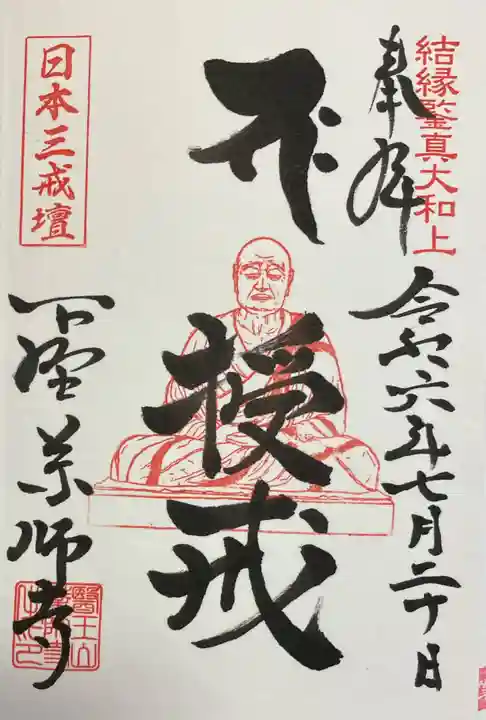 結縁鑒真大和上
奉拝
令和六年七月二十日
授戒
日本三戒壇
下野薬師寺